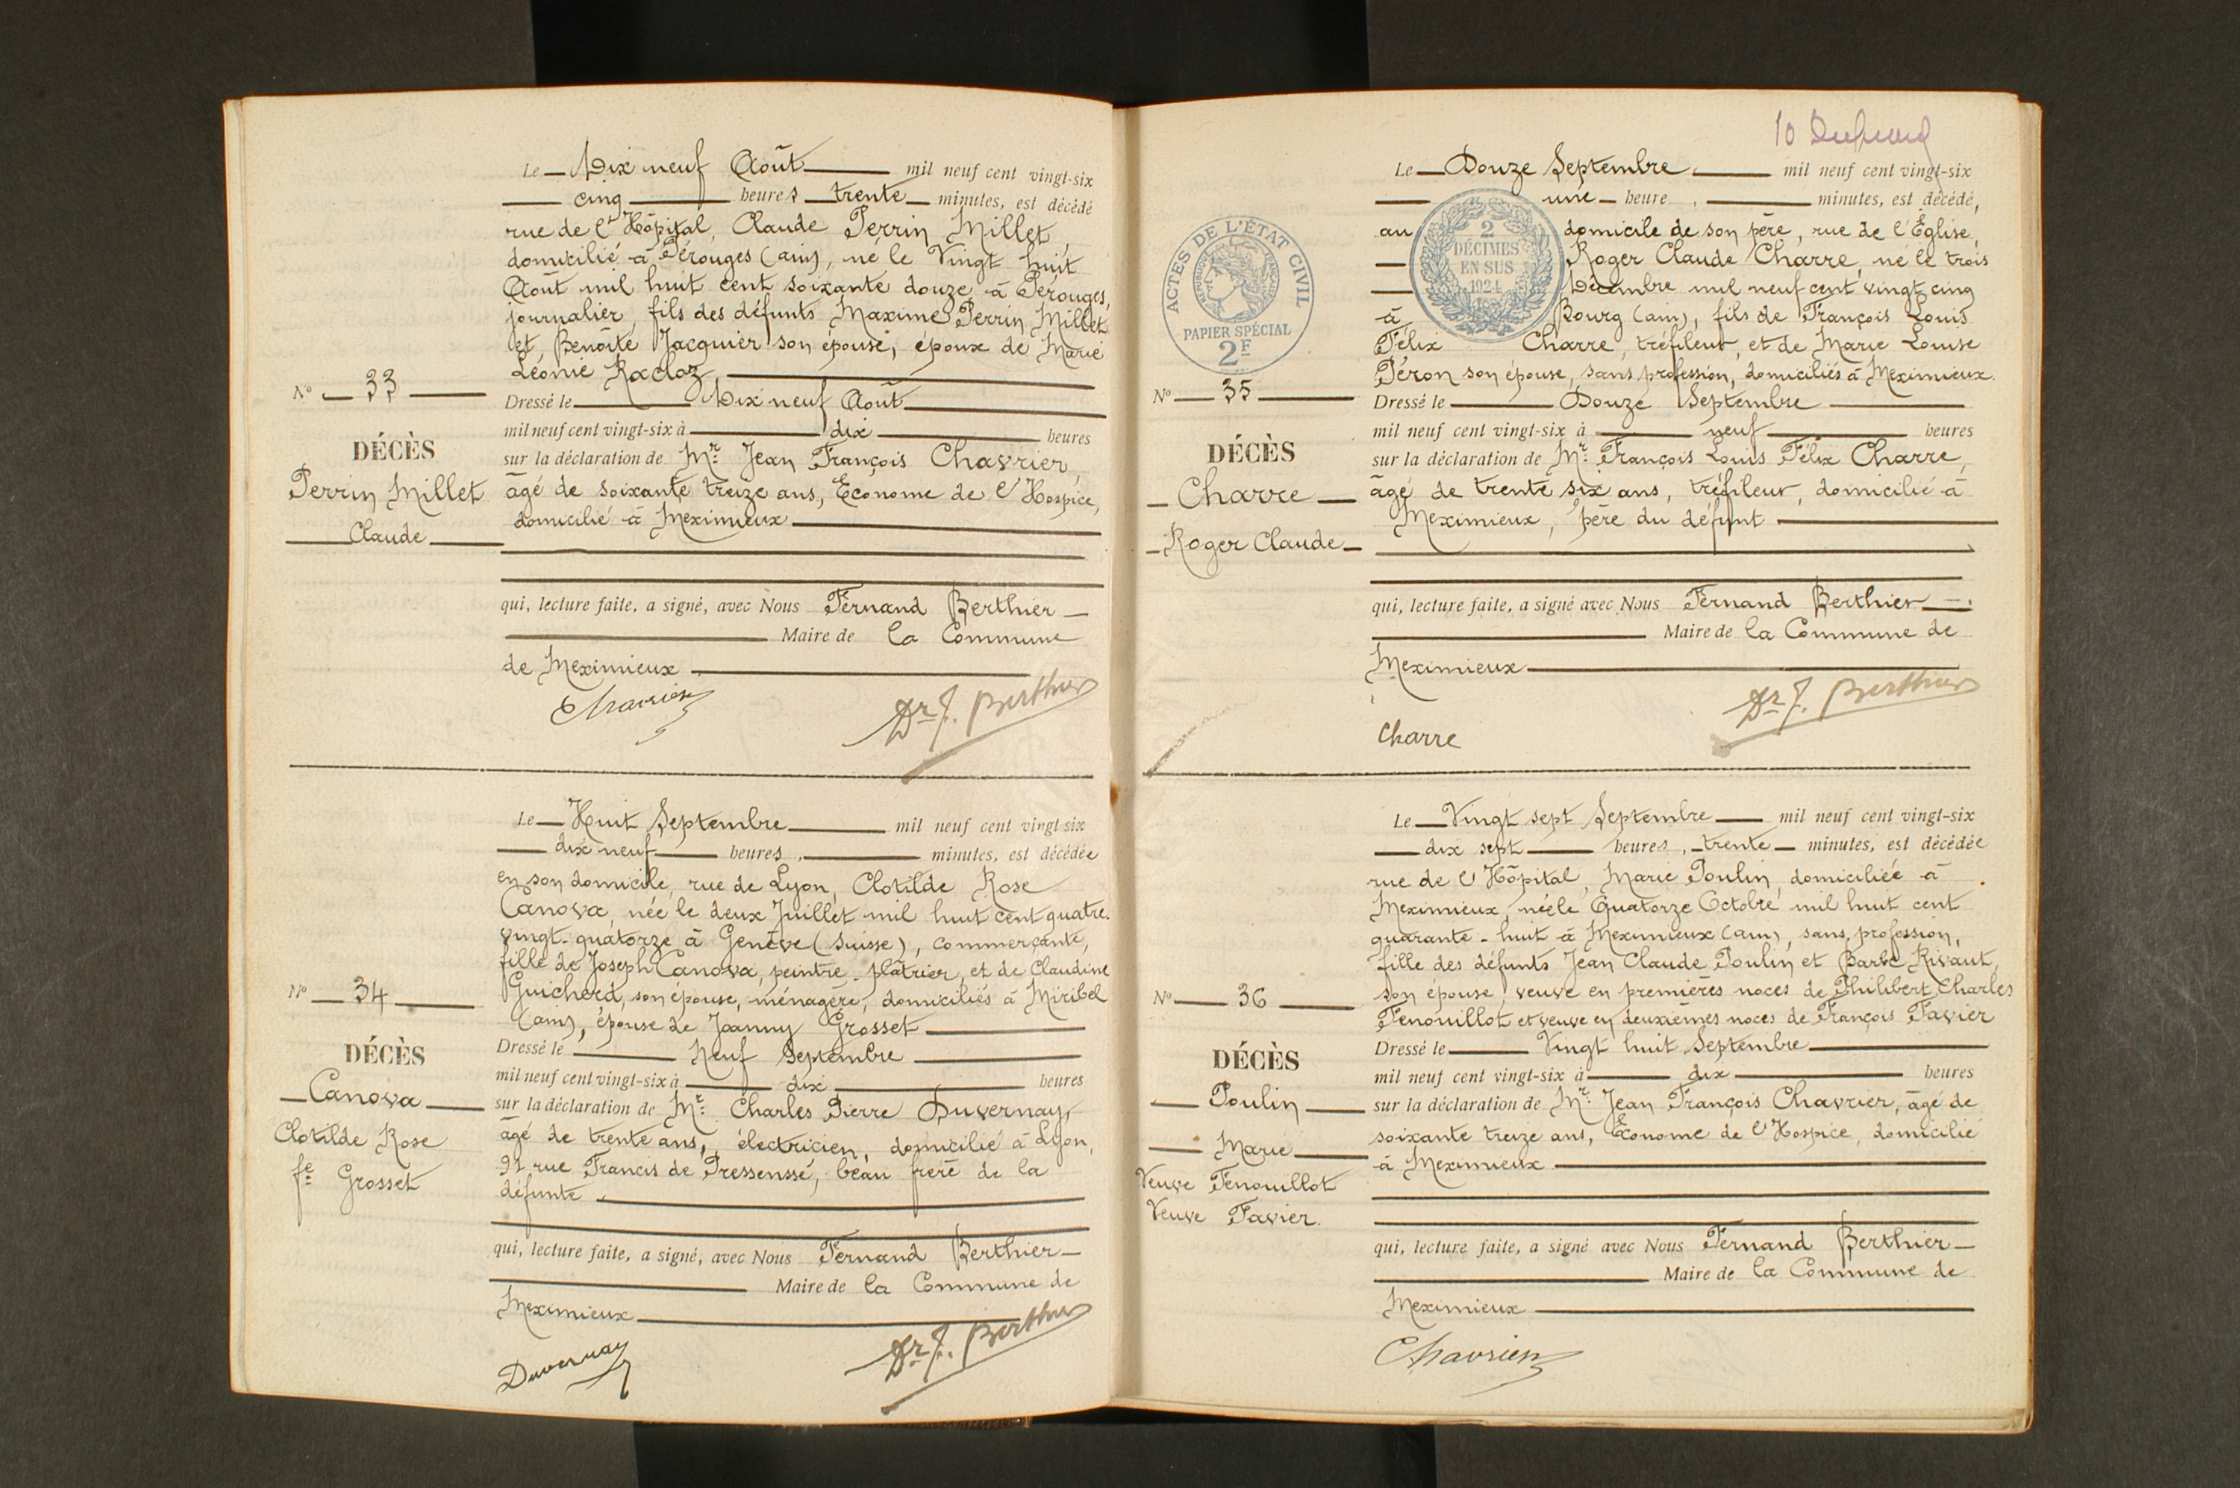 Le Dix neuf Août mil neuf cent vingt-six
cinq heures trente minutes, est décédé
rue de l'Hôpital, Claude Perrin Millet,
domicilié à Pérouges (ain), né le Vingt huit
Août mil huit cent soixante douze à Pérouges,
journalier, fils des défunts Maxime Perrin Millet
et Benoîte Jacquier son épouse, époux de Marie
Léonie Racloz
No 33
Dressé le Dix neuf Août
mil neuf cent vingt-six à dix heures
DÉCÈS
sur la déclaration de Mr. Jean François Chavrier,
Perrin Millet
âgé de soixante treize ans, Econome de l'Hospice,
domicilié à Meximieux
Claude
qui, lecture faite, a signé, avec Nous Fernand Berthier
Maire de la Commune
de Meximieux
Chavrier
Dr F. Berthier
Le Huit Septembre mil neuf cent vingt-six
dix neuf heures, minutes, est décédée
en son domicile, rue de Lyon, Clotilde Rose
Canova, née le deux Juillet mil huit cent quatre-
vingt-quatorze à Genève (Suisse), commerçante,
fille de Joseph Canova, peintre-plâtrier, et de Claudine
Guicherd, son épouse, ménagère, domiciliés à Miribel
(ain), épouse de Joanny Grosset
No 34
Dressé le Neuf Septembre
DÉCÈS
mil neuf cent vingt-six à dix heures
Canova
sur la déclaration de Mr. Charles Pierre Duvernay,
Clotilde Rose
âgé de trente ans, électricien, domicilié à Lyon,
fe Grosset
91 rue Francis de Pressenssé, beau frère de la
défunte
qui, lecture faite, a signé, avec Nous Fernand Berthier
Maire de la Commune de
Meximieux
Duvernay
Dr F. Berthier
10
Le Douze Septembre mil neuf cent vingt-six
une heure, minutes, est décédé,
au domicile de son père, rue de l'Église,
Roger Claude Charre, né le trois
Décembre mil neuf cent vingt cinq
à Bourg (ain), fils de François Louis
Félix Charre, tréfileur, et de Marie Louise
Péron son épouse, sans profession, domiciliés à Meximieux.
ACTES DE L'ÉTAT CIVIL
PAPIER SPÉCIAL
2F
2
DÉCIMES
EN SUS
1924
No 35
Dressé le Douze Septembre
mil neuf cent vingt-six à neuf heures
DÉCÈS
sur la déclaration de Mr. François Louis Félix Charre,
Charre
âgé de trente six ans, tréfileur, domicilié à
Meximieux, père du défunt
Roger Claude
qui, lecture faite, a signé avec Nous Fernand Berthier
Maire de la Commune de
Meximieux
Charre
Dr F. Berthier
Le Vingt sept Septembre mil neuf cent vingt-six
dix sept heures, trente minutes, est décédée
rue de l'Hôpital, Marie Poulin, domiciliée à
Meximieux, née le Quatorze Octobre mil huit cent
quarante-huit à Meximieux (ain), sans profession,
fille des défunts Jean Claude Poulin et Barbe Rivaut,
son épouse, veuve en premières noces de Philibert Charles
Fenouillot et veuve en deuxièmes noces de François Favier
No 36
Dressé le Vingt huit Septembre
DÉCÈS
mil neuf cent vingt-six à dix heures
Poulin
sur la déclaration de Mr. Jean François Chavrier, âgé de
soixante treize ans, Econome de l'Hospice, domicilié
Marie
à Meximieux
Veuve Fenouillot
Veuve Favier.
qui, lecture faite, a signé avec Nous Fernand Berthier
Maire de la Commune de
Meximieux
Chavrier